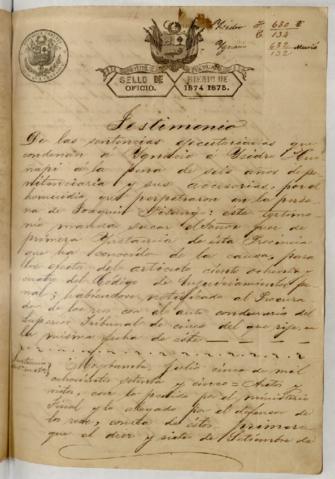 Isidro F. 630
C 134
Ignacio 632 Murió
132
SELLO DE OFICIO.
BIENIO DE 1874 1875.
Testimonio
De las sentencias ejecutoriadas que
condenan á Ygnacio é Ysidro
á la pena de seis años de pe-
nitenciaria y sus accesorias, por el
homicidio que perpetraron en la perso-
na de Joaquin este testimo-
nio manda sacar el Señor Juez de
primera Instancia de esta Provincia
que ha conocido de la causa, para
los efectos del articulo ciento ochenta y
cuatro del Código de Enjuiciamientos pe-
nal; habiendose notificado al Procura-
dor de los reos con el auto del
Superior Tribunal de cinco del que rije, en
la misma fecha de este
Moyobamba, Julio cinco de mil
ochocientos setenta y cinco = Autos y
vistos, con lo pedido por el ministerio
Fiscal y lo alegado por el defensor de
los reos, consta de ellos: primero
que el diez y siete de Setiembre de